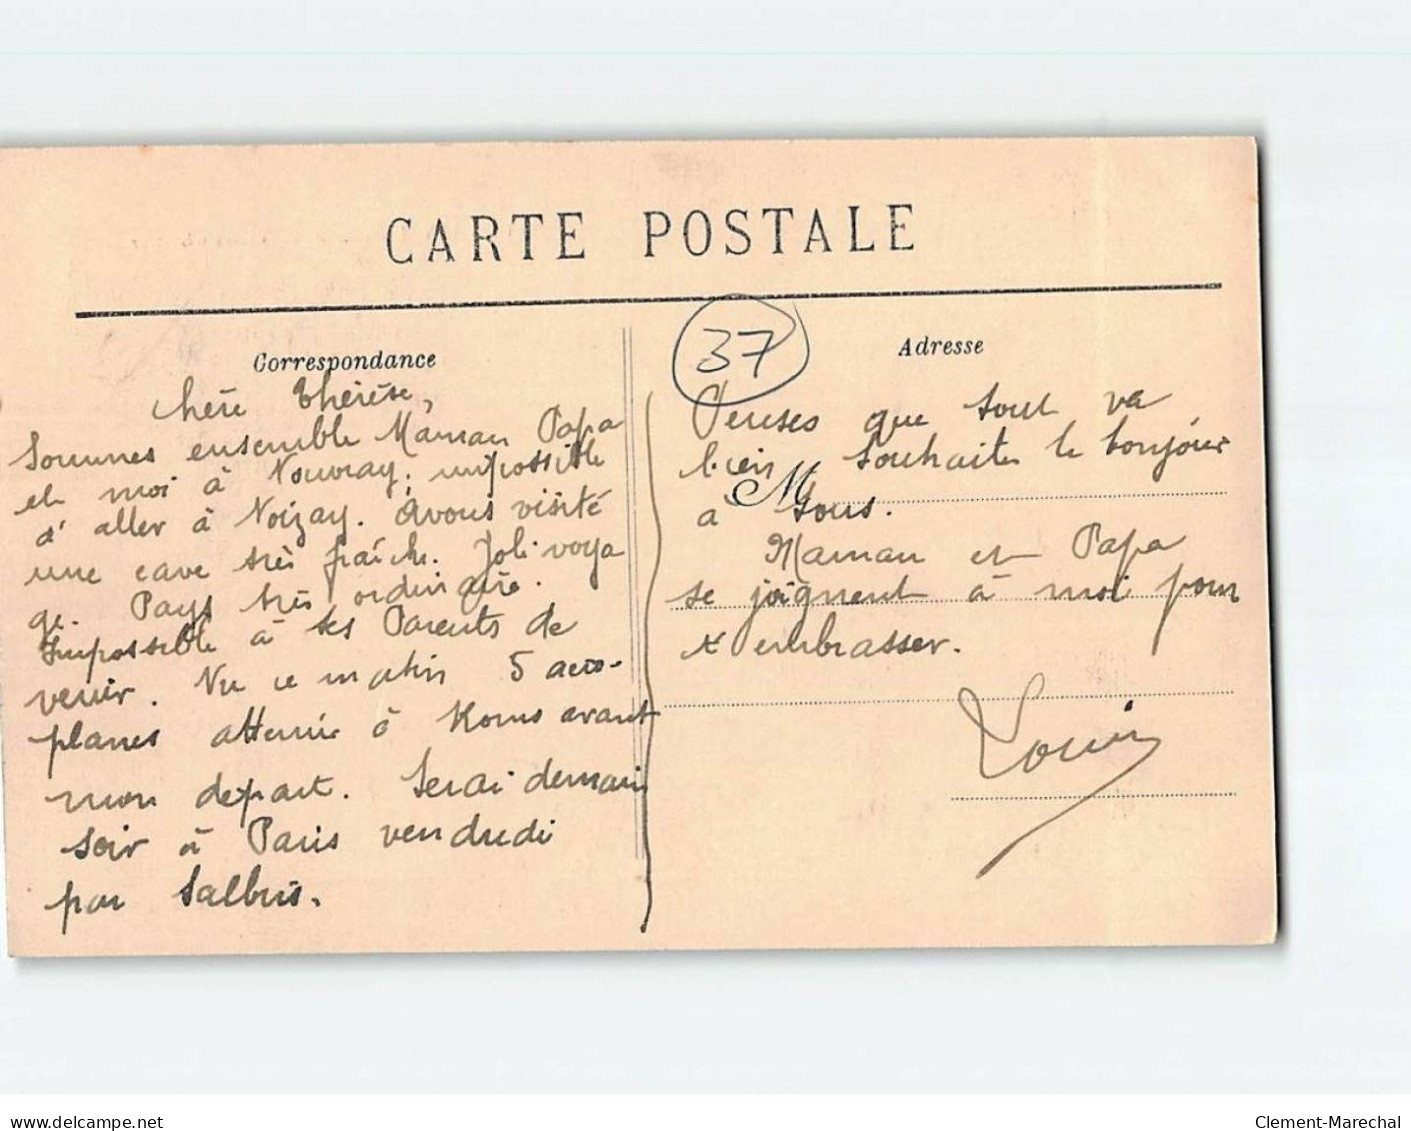 CARTE POSTALE
37
Correspondance
Adresse
Chère Thérèse,
Sommes ensemble Maman Papa
et moi à Vouvray, impossible
d'aller à Noizay. Avons visité
une cave très fraîche. Joli voya
ge. Pays très ordinaire.
Impossible à tes Parents de
venir. Vu ce matin 5 aéro-
planes atterrir à avant
mon départ. Serai demain
soir à Paris vendredi
par Salbris.
Penses que tout va
bien, souhaite le bonjour
M
à tous.
Maman et Papa
se joignent à moi pour
t'embrasser.
Louis
delcampe.net
Clement-Marechal